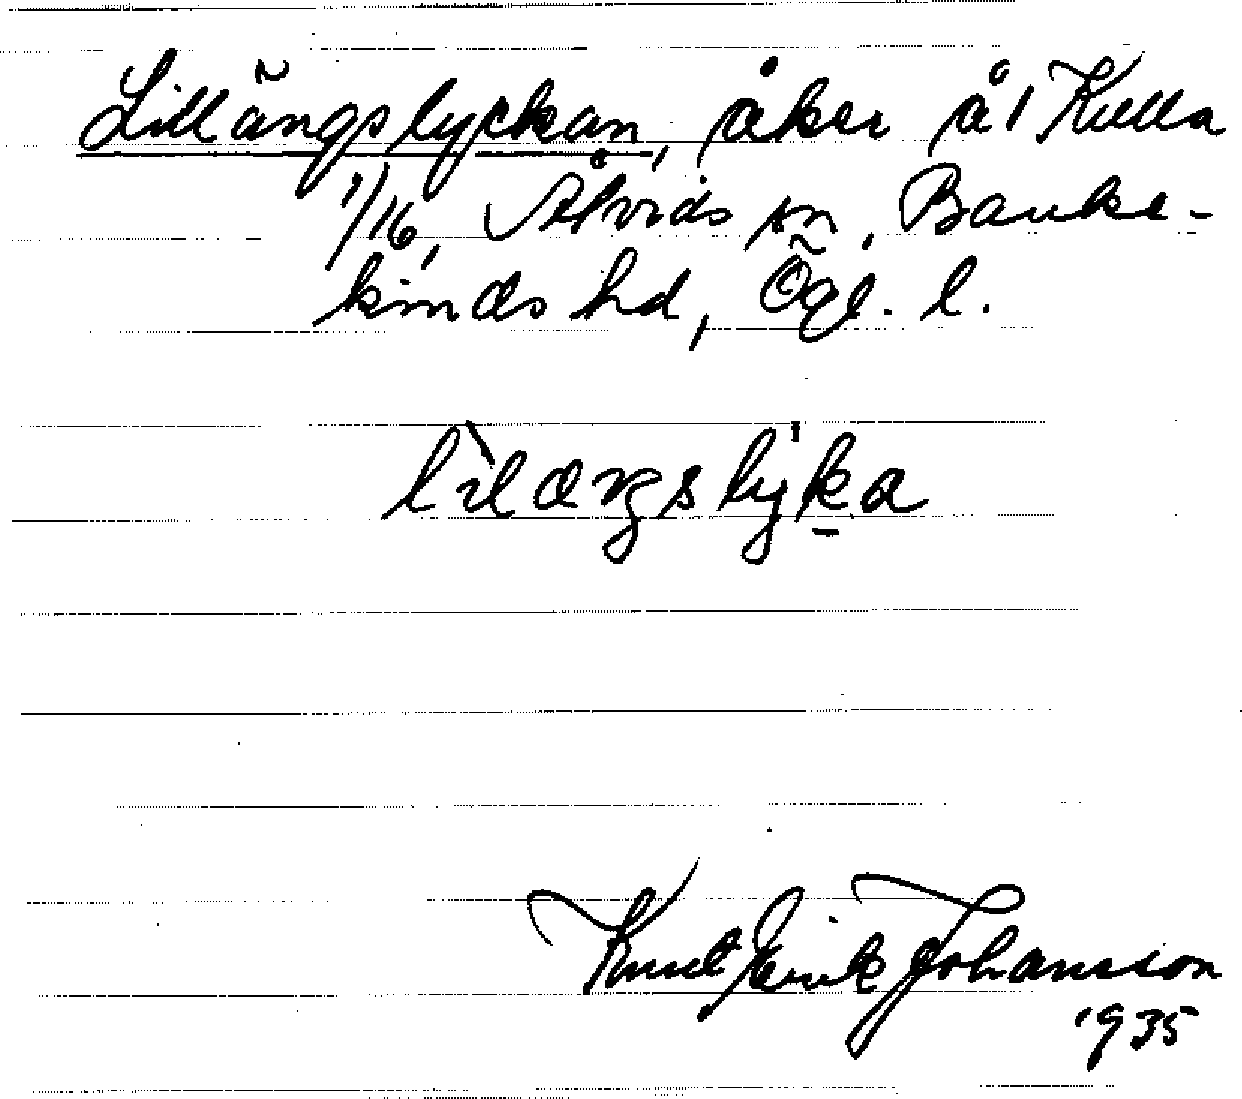 Lillängslyckan, åker å 1 Kulla
1/16, Åtvids sn, Banke-
kinds hd, Ögl. l.
lìlæŋslyka
Knut Erik Johansson
1935